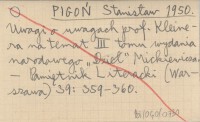 PIGOŃ Stanisław 1950.
Uwagi o uwagach prof. Kleine-
ra na temat III tomu wydania
narodowego „Dzieł" Mickiewicza
— Pamiętnik Literacki (War-
szawa) 39: 359-360.